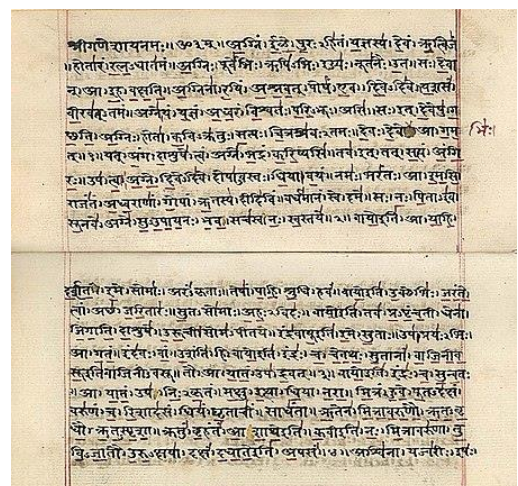 श्रीगणेशायनमः॥ॐ३म्॥ अग्निं। ईळे। पुरःऽहितं। यज्ञस्य। देवं। ऋत्विजं
॥होतारं। रत्नऽधातमं॥ अग्निः। पूर्वेभिः। ऋषिऽभिः। ईड्यः। नूतनैः। उत॥ सः। देवा
न्। आ। इह। वक्षति॥ अग्निना। रयिं। अश्नवत्। पोषं। एव। दिवेऽदिवे॥ यशसं।
वीरवत्ऽतमं॥ अग्ने। यं। यज्ञं। अध्वरं। विश्वतः। परिऽभूः। असि॥ सः। इत्। देवेषु। ग
च्छति॥ अग्निः। होता। कविऽक्रतुः। सत्यः। चित्रश्रवःऽतमः॥ देवः। देवे। आ। गम भिः।
त्॥१॥ यत्। अंग। दाशुषे। त्वं। अग्ने। भद्रं। करिष्यसि॥ तव। इत्। तत्। सत्यं। अंगि
रः॥ उप। त्वा। अग्ने। दिवेऽदिवे। दोषाऽवस्तः। धिया। वयं॥ नमः। भरंतः। आ। इमसि॥
राजंतं। अध्वराणां। गोपां। ऋतस्य। दीदिविं॥ वर्धमानं। स्वे। दमे॥ सः। नः। पिताऽइव।
सूनवे। अग्ने। सुऽउपायनः। भव॥ सचस्व। नः। स्वस्तये॥२॥ वायोइति। आ। याहि।
दर्शत। इमे। सोमाः। अरंऽकृताः॥ तेषां। पाहि। श्रुधि। हवं॥ वायोइति। उक्थेभिः। जरंते।
त्वां। अच्छ। जरितारः॥ सुतऽसोमाः। अहःऽविदः॥ वायोइति। तव। प्रऽपृंचती। धेना॥
जिगाति। दाशुषे॥ उरूची। सोमऽपीतये॥ इंद्रवायूइति। इमे। सुताः॥ उप। प्रयःऽभिः।
आ। गतं॥ इंदवः। वां। उशंति। हि॥ वायोइति। इंद्रः। च। चेतथः। सुतानां। वाजिनीव
सूइतिवाजिनीऽवसू॥ तौ। आ। यातं। उप। द्रवत्॥३॥ वायोइति। इंद्रः। च। सुन्वतः
॥ आ। यातं। उप। निःऽकृतं॥ मक्षु। इत्था। धिया। नरा॥ मित्रं। हुवे। पूतऽदक्षं।
वरुणं। च। रिशादसं॥ धियं। घृताचीं। साधंता॥ ऋतेन। मित्रावरुणौ। ऋतऽवृ
धौ। ऋतऽस्पृशा॥ क्रतुं। बृहंतं। आशाथेइति॥ कवीइति। नः। मित्रावरुणा। तु
विऽजातौ। उरुऽक्षया॥ दक्षं। दधातेइति। अपसं॥४॥ अश्विना। यज्वरीः। इषः।